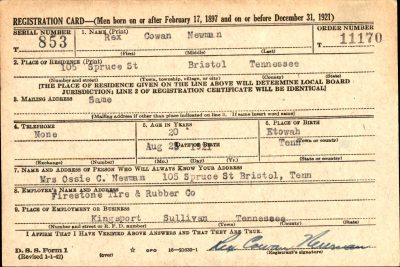 REGISTRATION CARD—(Men born on or after February 17, 1897 and on or before December 31, 1921)
SERIAL NUMBER 1. NAME (Print) ORDER NUMBER
T 853 Rex Cowan Newman T 11170
(First) (Middle) (Last)
2. PLACE OF RESIDENCE (Print)
105 Spruce St Bristol Tennessee
(Number and street) (Town, township, village, or city) (County) (State)
[THE PLACE OF RESIDENCE GIVEN ON THE LINE ABOVE WILL DETERMINE LOCAL BOARD
JURISDICTION; LINE 2 OF REGISTRATION CERTIFICATE WILL BE IDENTICAL]
3. MAILING ADDRESS
Same
[Mailing address if other than place indicated on line 2. If same insert word same]
4. TELEPHONE 5. AGE IN YEARS 6. PLACE OF BIRTH
None 20 Etowah
DATE OF BIRTH (Town or county)
Aug 1921 Tenn
(Exchange) (Number) (Mo.) (Day) (Yr.) (State or country)
7. NAME AND ADDRESS OF PERSON WHO WILL ALWAYS KNOW YOUR ADDRESS
Mrs Ossie C. Newman 105 Spruce St Bristol, Tenn
8. EMPLOYER'S NAME AND ADDRESS
Firestone Tire & Rubber Co
9. PLACE OF EMPLOYMENT OR BUSINESS
Kingsport Sullivan Tennessee
(Number and street or R. F. D. number) (Town) (County) (State)
I AFFIRM THAT I HAVE VERIFIED ABOVE ANSWERS AND THAT THEY ARE TRUE.
D. S. S. Form 1 GPO 16—21630-1 Rex Cowan Newman
(Revised 1-1-42) (Registrant's signature)